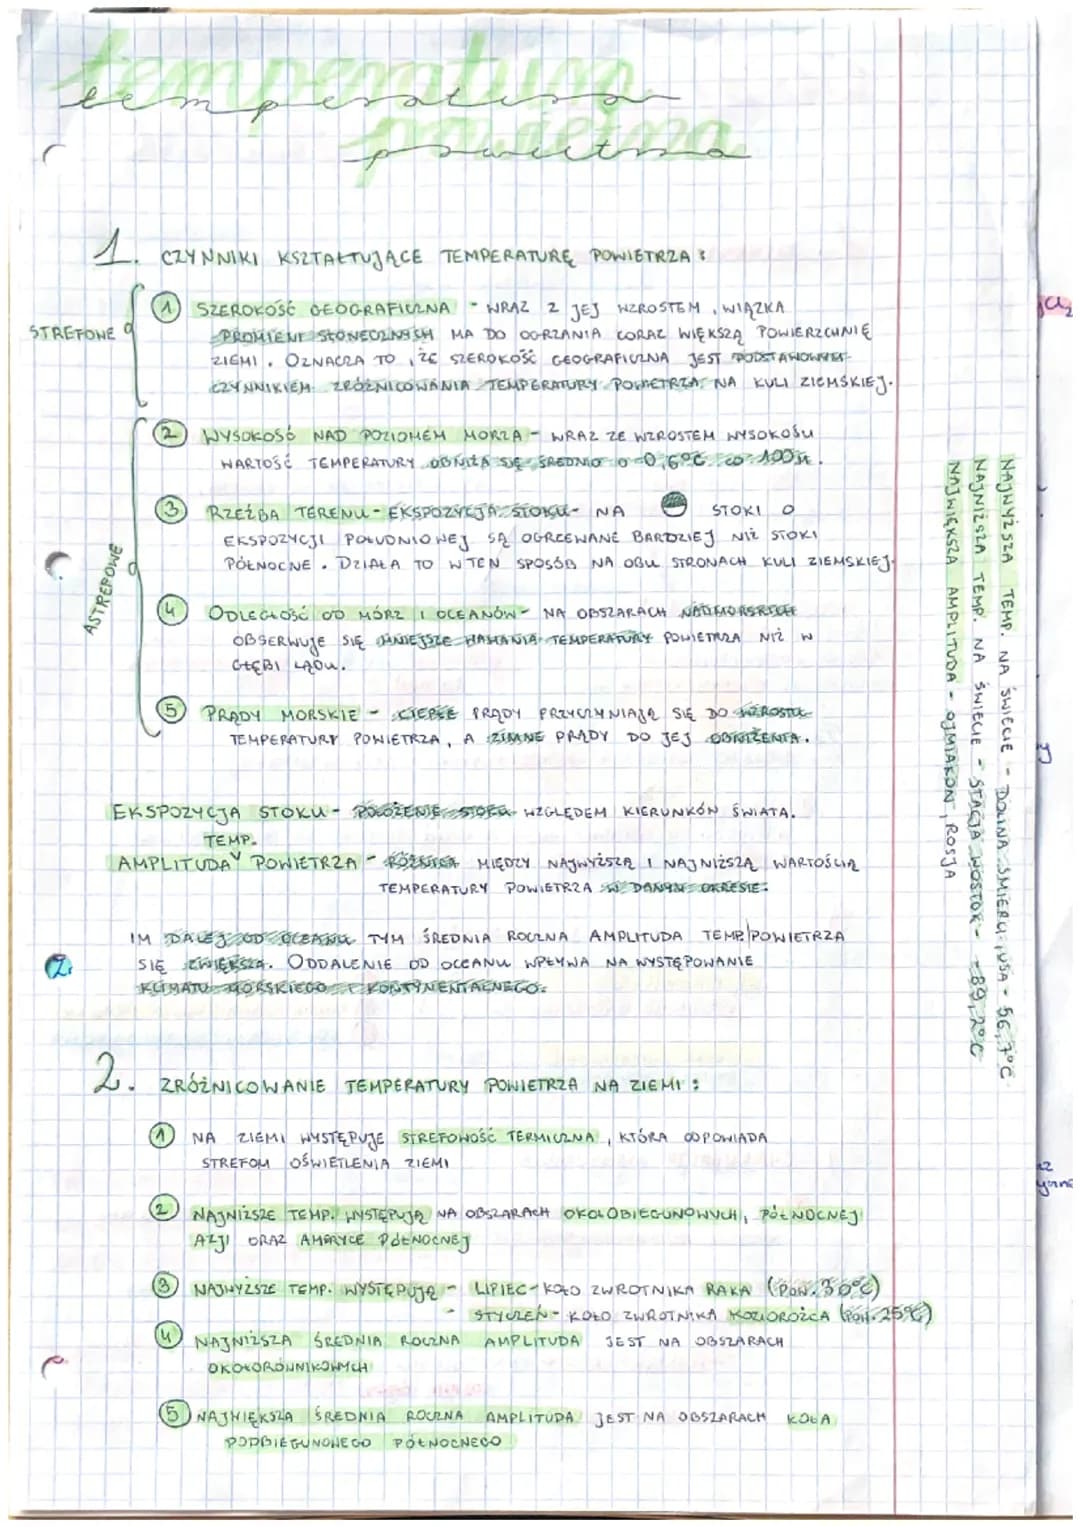 temperatura
powietrza
1. CZYNNIKI KSZTAŁTUJĄCE TEMPERATURĘ POWIETRZA:
STREFOWE
1 SZEROKOŚĆ GEOGRAFICZNA - WRAZ Z JEJ WZROSTEM, WIĄZKA
PROMIENI SŁONECZNYCH MA DO OGRZANIA CORAZ WIĘKSZĄ POWIERZCHNIĘ
ZIEMI. OZNACZA TO, ŻE SZEROKOŚĆ GEOGRAFICZNA JEST PODSTAWOWYM
CZYNNIKIEM ZRÓŻNICOWANIA TEMPERATURY POWIETRZA NA KULI ZIEMSKIEJ.
ASTREFOWE
2 WYSOKOŚĆ NAD POZIOMEM MORZA - WRAZ ZE WZROSTEM WYSOKOŚCI
WARTOŚĆ TEMPERATURY OBNIŻA SIĘ ŚREDNIO O 0,6°C CO 100M.
3 RZEŹBA TERENU - EKSPOZYCJA STOKU - NA STOKI O
EKSPOZYCJI POŁUDNIOWEJ SĄ OGRZEWANE BARDZIEJ NIŻ STOKI
PÓŁNOCNE. DZIAŁA TO W TEN SPOSÓB NA OBU STRONACH KULI ZIEMSKIEJ.
4 ODLEGŁOŚĆ OD MÓRZ I OCEANÓW - NA OBSZARACH NADMORSKICH
OBSERWUJE SIĘ MNIEJSZE WAHANIA TEMPERATURY POWIETRZA NIŻ W
GŁĘBI LĄDU.
5 PRĄDY MORSKIE - CIEPŁE PRĄDY PRZYCZYNIAJĄ SIĘ DO WZROSTU
TEMPERATURY POWIETRZA, A ZIMNE PRĄDY DO JEJ OBNIŻENIA.
EKSPOZYCJA STOKU - POŁOŻENIE STOKU WZGLĘDEM KIERUNKÓW ŚWIATA.
TEMP.
AMPLITUDA POWIETRZA - RÓŻNICA MIĘDZY NAJWYŻSZĄ I NAJNIŻSZĄ WARTOŚCIĄ
TEMPERATURY POWIETRZA W DANYM OKRESIE.
IM DALEJ OD OCEANU TYM ŚREDNIA ROCZNA AMPLITUDA TEMP. POWIETRZA
SIĘ ZWIĘKSZA. ODDALENIE OD OCEANU WPŁYWA NA WYSTĘPOWANIE
KLIMATU MORSKIEGO I KONTYNENTALNEGO.
2. ZRÓŻNICOWANIE TEMPERATURY POWIETRZA NA ZIEMI:
1 NA ZIEMI WYSTĘPUJE STREFOWOŚĆ TERMICZNA, KTÓRA ODPOWIADA
STREFOM OŚWIETLENIA ZIEMI
2 NAJNIŻSZE TEMP. WYSTĘPUJĄ NA OBSZARACH OKOŁOBIEGUNOWYCH, PÓŁNOCNEJ
AZJI ORAZ AMERYCE PÓŁNOCNEJ
3 NAJWYŻSZE TEMP. WYSTĘPUJĄ - LIPIEC - KOŁO ZWROTNIKA RAKA (POW. 30°C)
- STYCZEŃ - KOŁO ZWROTNIKA KOZIOROŻCA (POW. 25°C)
4 NAJNIŻSZA ŚREDNIA ROCZNA AMPLITUDA JEST NA OBSZARACH
OKOŁORÓWNIKOWYCH
5 NAJWIĘKSZA ŚREDNIA ROCZNA AMPLITUDA JEST NA OBSZARACH KOŁA
PODBIEGUNOWEGO PÓŁNOCNEGO
NAJWYŻSZA TEMP. NA ŚWIECIE - DOLINA ŚMIERCI, USA - 56,7°C
NAJNIŻSZA TEMP. NA ŚWIECIE - STACJA WOSTOK - -89,2°C
NAJWIĘKSZA AMPLITUDA - OJMIAKON, ROSJA